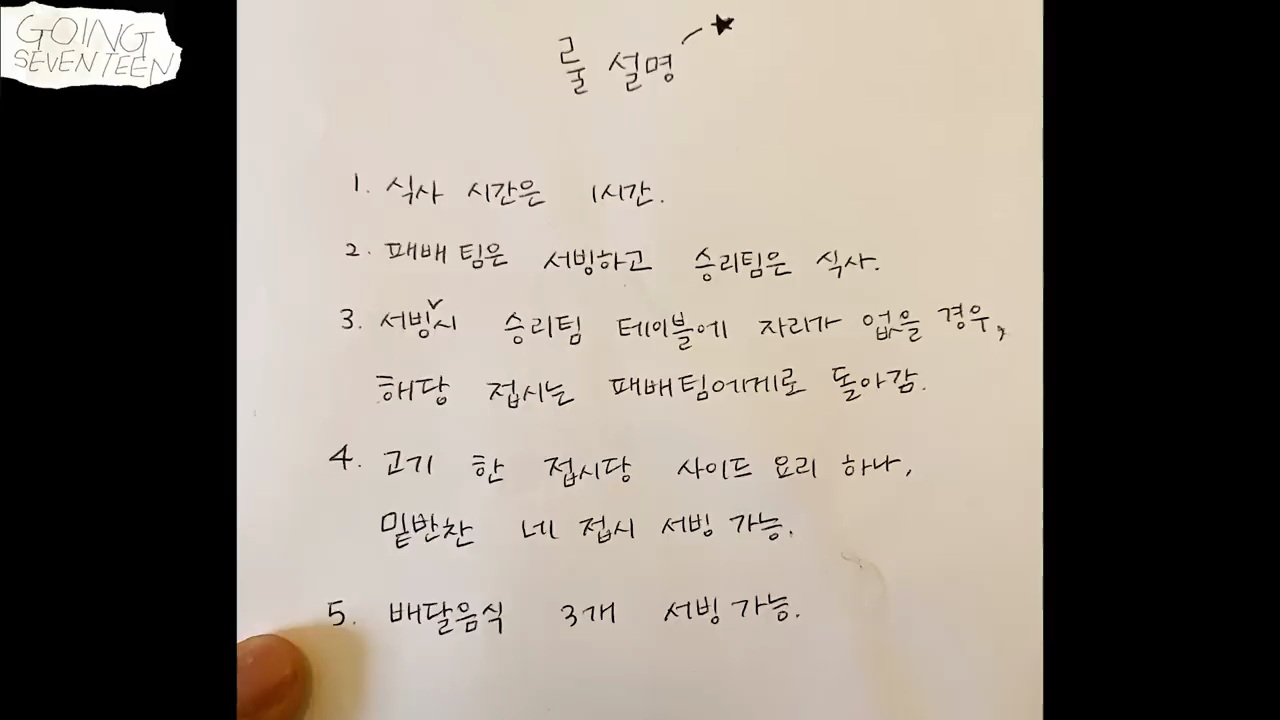 GOING
SEVENTEEN
룰 설명
1. 식사 시간은 1시간.
2. 패배 팀은 서빙하고 승리팀은 식사.
3. 서빙 시 승리팀 테이블에 자리가 없을 경우,
해당 접시는 패배팀에게로 돌아감.
4. 고기 한 접시당 사이드 요리 하나,
밑반찬 네 접시 서빙 가능.
5. 배달음식 3개 서빙 가능.